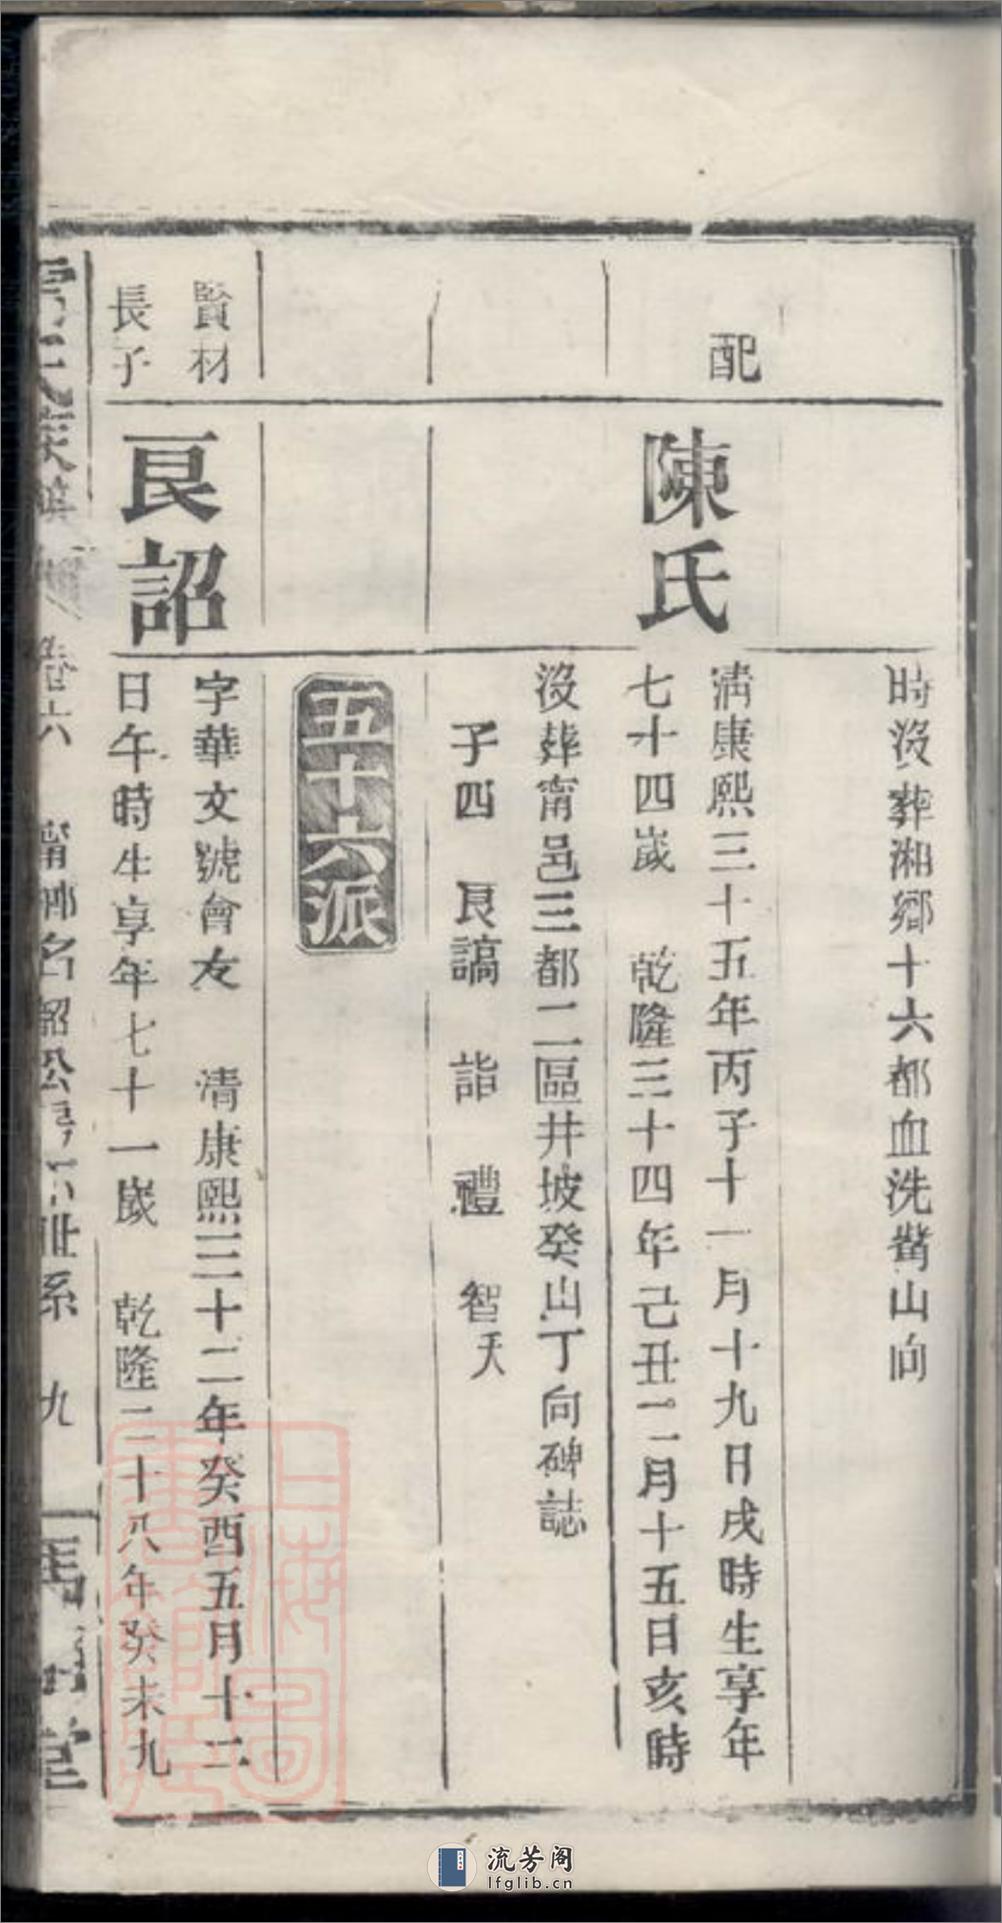 時沒葬湘鄉十六都血洗嶺山向
配
陳氏
清康熙三十五年丙子十一月十九日戌時生享年
七十四歲　乾隆三十四年己丑二月十五日亥時
沒葬甯邑三都二區井坡癸山丁向碑誌
子四　良謞　詣　禮　智夭
五十六派
賢材
長子
良詔
字華文號會友　清康熙三十二年癸酉五月十二
日午時生享年七十一歲　乾隆二十八年癸未九
氏族譜
卷六　甯鄉名韶公房　世系　九
堂
上海圖書館藏
流芳阁
lfglib.cn